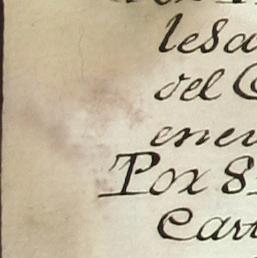 lesa
del C
enei
Por 8
Cart